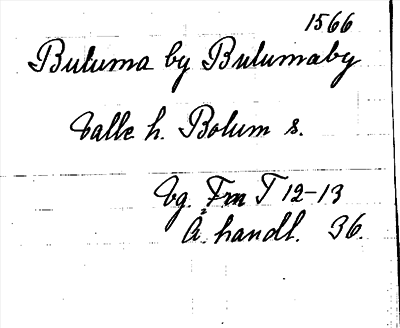 1566
Buluma by Bulumaby
Valle h. Bolum s.
Vg. Frn T 12-13
A. handl. 36.